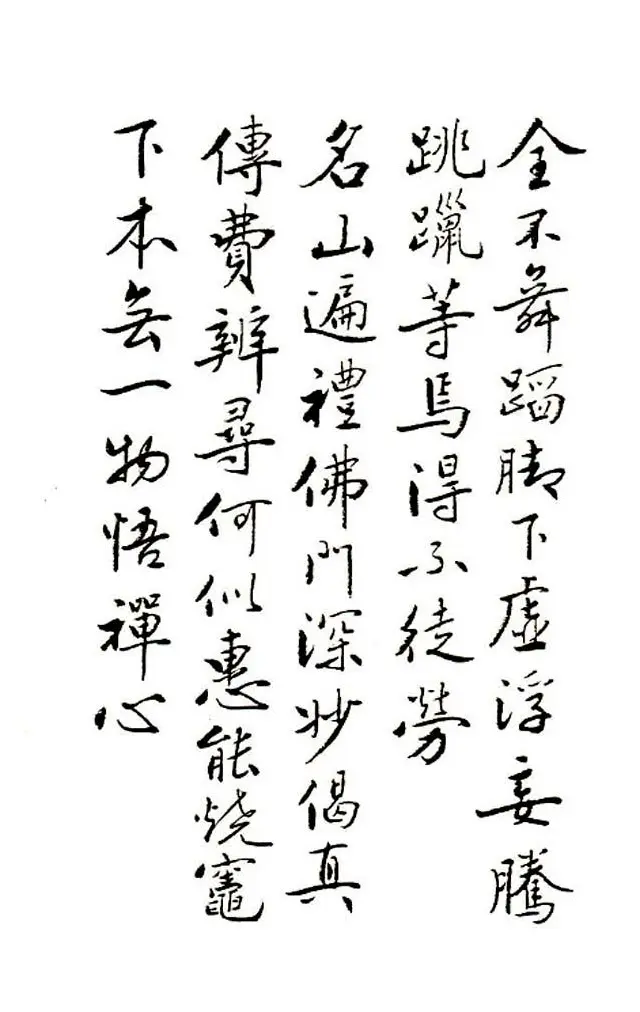 全不舞蹈脚下虛浮妄騰
跳躐等焉得不徒勞
名山遍禮佛門深妙偈真
傳費辨尋何似惠能燒竈
下本無一物悟禪心